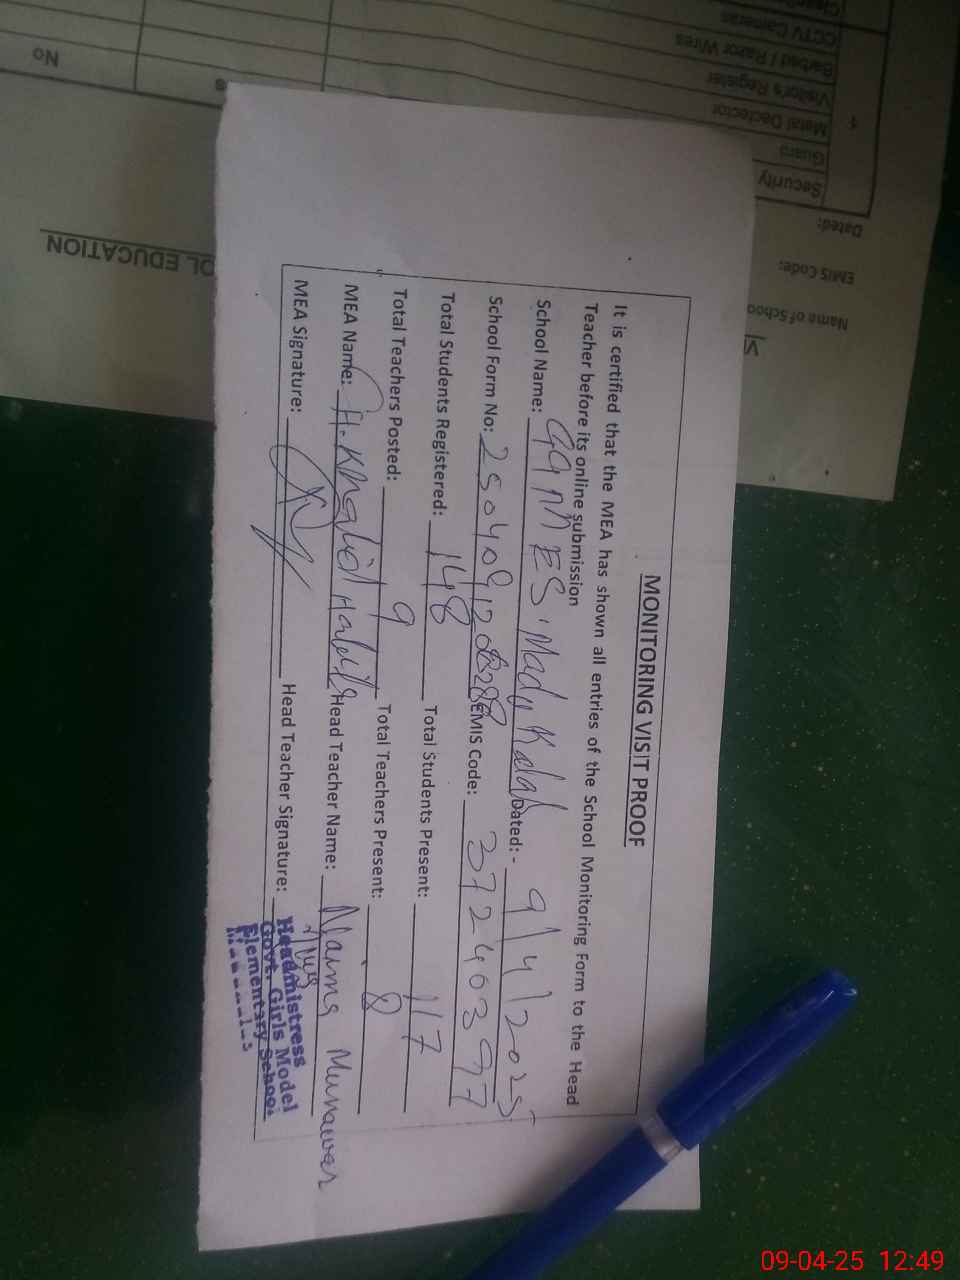 MONITORING VISIT PROOF
It is certified that the MEA has shown all entries of the School Monitoring Form to the Head
Teacher before its online submission
School Name: GGMES Mady Kalah Dated: - 9/4/2025
School Form No: EMIS Code: 37240397
Total Students Registered: 148 Total Students Present: 117
Total Teachers Posted: 9 Total Teachers Present: 8
MEA Name: H. Khalid Habib Head Teacher Name: Naima Munawar
MEA Signature: Head Teacher Signature:
Headmistress
Govt. Girls Model
Elementary School
Name of School
EMIS Code:
Dated:
OL EDUCATION
No
1
Security
Guard
Metal Dectector
Visitor's Register
Barbed / Razor Wires
CCTV Cameras
09-04-25 12:49